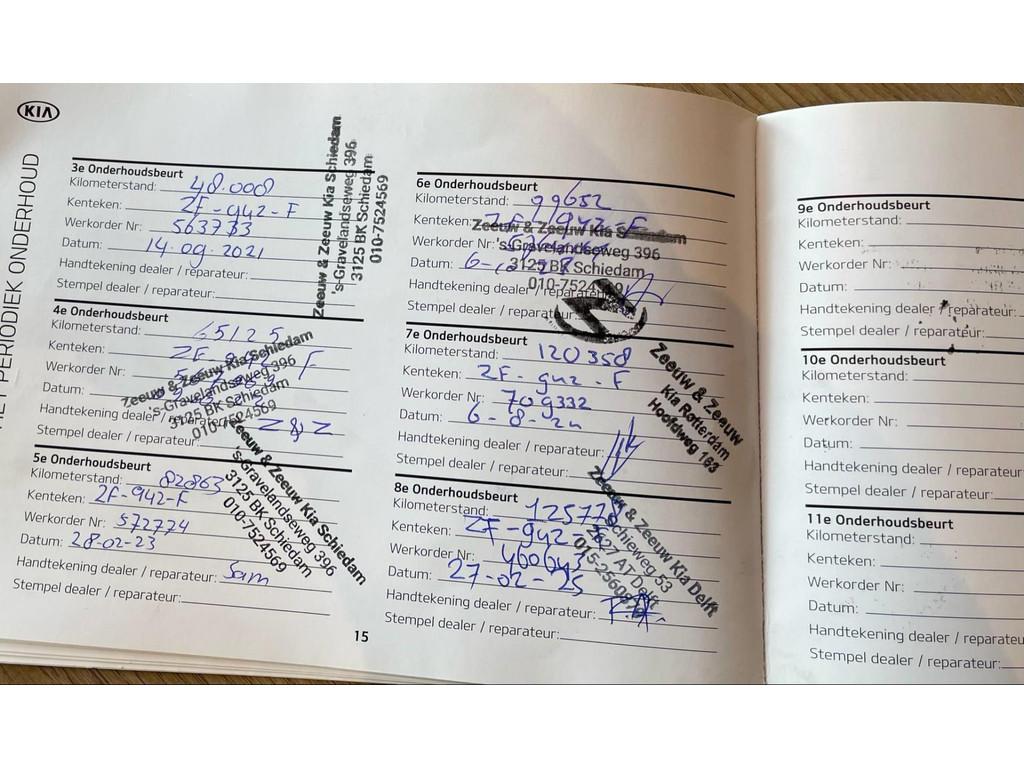 KIA
PERIODIEK ONDERHOUD
3e Onderhoudsbeurt
Kilometerstand: 48.008
Kenteken: ZF-942-F
Werkorder Nr: 563733
Datum: 14.09.2021
Handtekening dealer / reparateur:
Stempel dealer / reparateur:
Zeeuw & Zeeuw Kia Schiedam
's-Gravelandseweg 396
3125 BK Schiedam
010-7524569
4e Onderhoudsbeurt
Kilometerstand: 65125
Kenteken: ZF F
Werkorder Nr:
Datum:
Handtekening dealer / reparateur: Z&Z
Stempel dealer / reparateur:
Zeeuw & Zeeuw Kia Schiedam
's-Gravelandseweg 396
3125 BK Schiedam
010-7524569
5e Onderhoudsbeurt
Kilometerstand: 82863
Kenteken: ZF-942-F
Werkorder Nr: 572774
Datum: 28-02-23
Handtekening dealer / reparateur: Sam
Stempel dealer / reparateur:
Zeeuw & Zeeuw Kia Schiedam
's-Gravelandseweg 396
3125 BK Schiedam
010-7524569
15
6e Onderhoudsbeurt
Kilometerstand: 99652
Kenteken: ZF-942-F
Werkorder Nr:
Datum:
Handtekening dealer / reparateur:
Stempel dealer / reparateur:
Zeeuw & Zeeuw Kia Schiedam
's-Gravelandseweg 396
3125 BK Schiedam
010-7524569
7e Onderhoudsbeurt
Kilometerstand: 120358
Kenteken: ZF-942-F
Werkorder Nr: 709332
Datum: 6-8-24
Handtekening dealer / reparateur:
Stempel dealer / reparateur:
Zeeuw & Zeeuw
Kia Rotterdam
Hoofdweg 163
8e Onderhoudsbeurt
Kilometerstand: 125778
Kenteken: ZF-942-
Werkorder Nr: 460643
Datum: 27-02-25
Handtekening dealer / reparateur:
Stempel dealer / reparateur:
Zeeuw & Zeeuw Kia Delft
Schieweg 53
2627 AT Delft
9e Onderhoudsbeurt
Kilometerstand:
Kenteken:
Werkorder Nr:
Datum:
Handtekening dealer / reparateur:
Stempel dealer / reparateur:
10e Onderhoudsbeurt
Kilometerstand:
Kenteken:
Werkorder Nr:
Datum:
Handtekening dealer / reparateur
Stempel dealer / reparateur:
11e Onderhoudsbeurt
Kilometerstand:
Kenteken:
Werkorder Nr:
Datum:
Handtekening dealer / reparateur
Stempel dealer / reparateur: